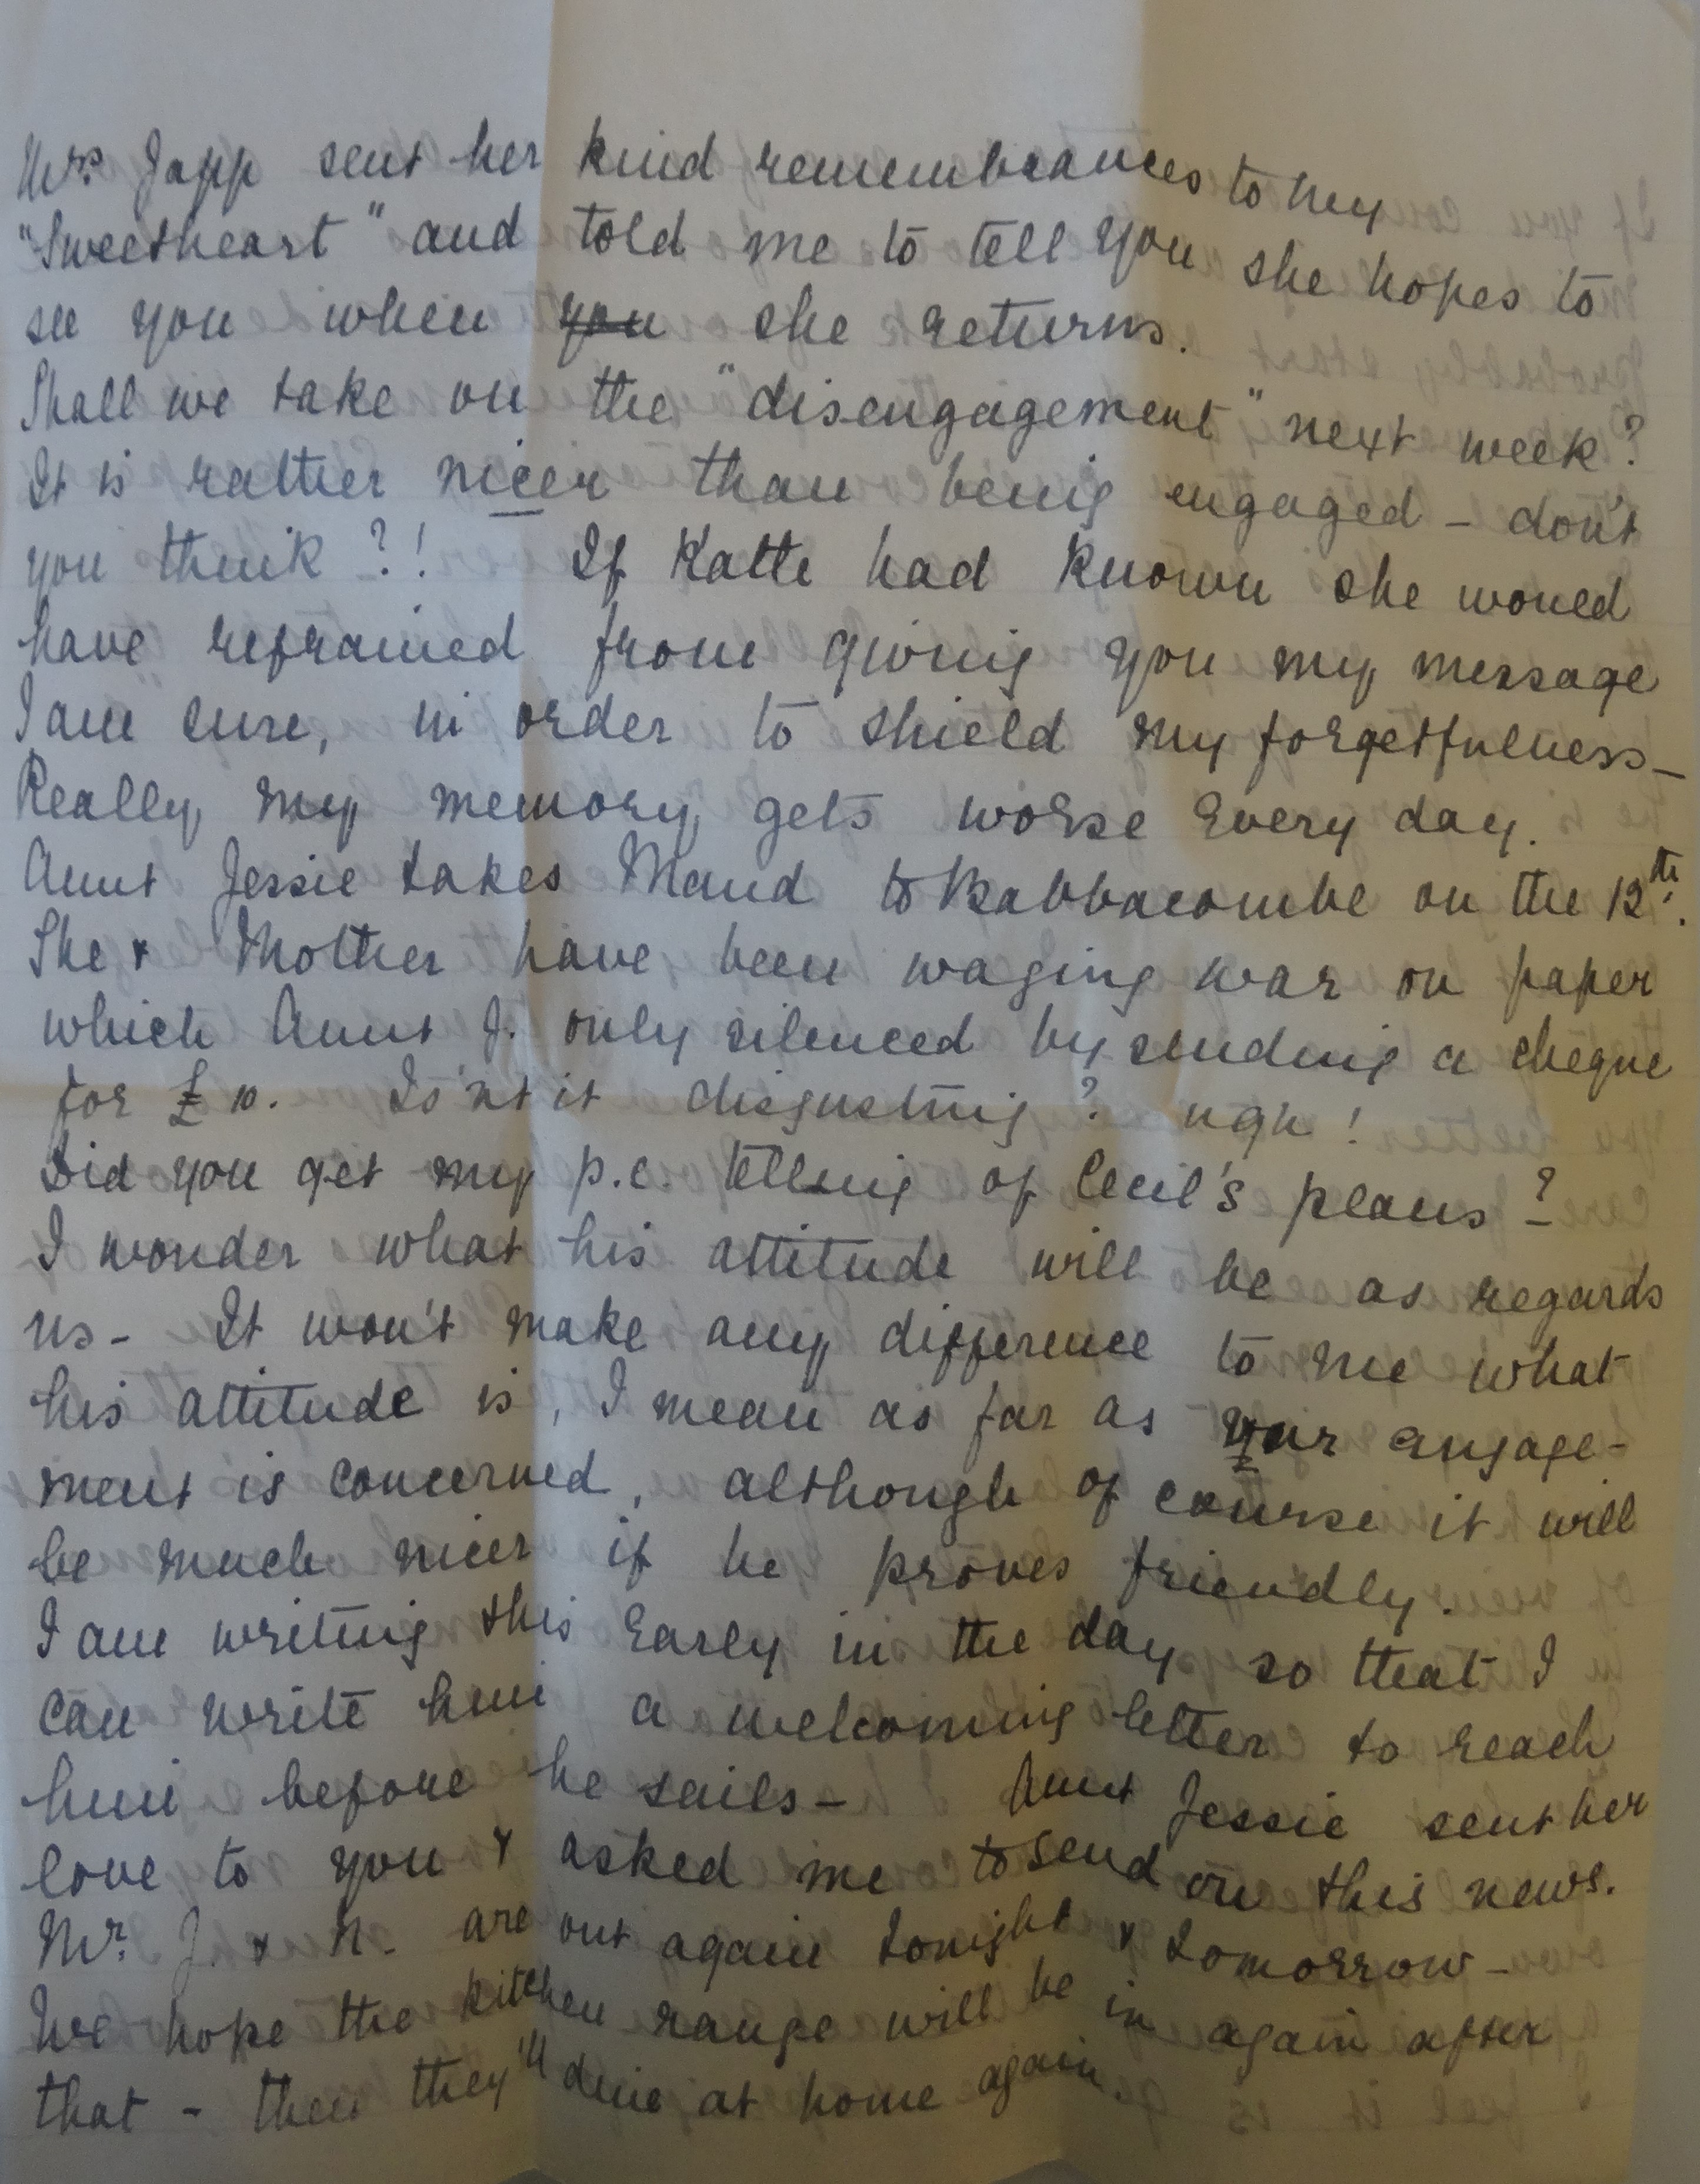 Mrs. Japp sent her kind remembrances to my
"Sweetheart" and told me to tell you she hopes to
see you when you she returns.
Shall we take on the "disengagement" next week?
It is rather nicer than being engaged - don't
you think ?! If Katte had known she would
have refrained from giving you my message
I am sure, in order to shield my forgetfulness -
Really my memory gets worse every day.
Aunt Jessie takes Maud to Babbacombe on the 12th.
She & Mother have been waging war on paper
which Aunt J. only silenced by sending a cheque
for £10. Is'nt it disgusting? ugh!
Did you get my p.c. telling of Cecil's plans?
I wonder what his attitude will be as regards
us - It won't make any difference to me what
his attitude is, I mean as far as our engage-
ment is concerned, although of course it will
be much nicer if he proves friendly.
I am writing this early in the day so that I
can write him a welcoming letter to reach
him before he sails - Aunt Jessie sent her
love to you & asked me to send on this news.
Mr. J. & N. are out again tonight & tomorrow -
We hope the kitchen range will be in again after
that - then they'll dine at home again.